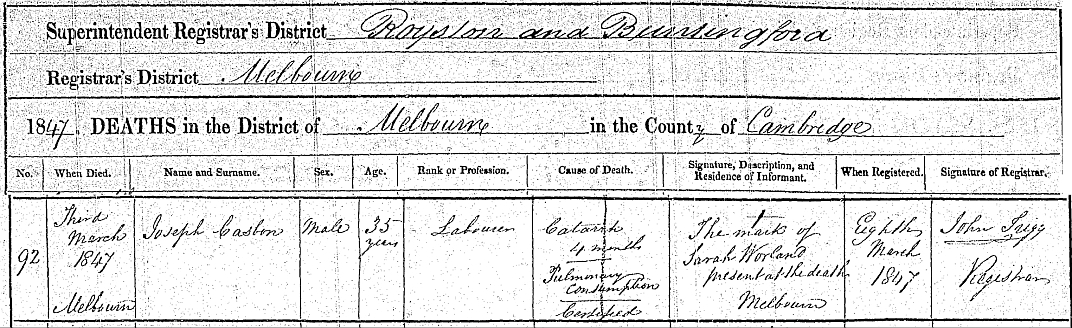 Superintendent Registrar's District Royston and Buntingford
Registrar's District Melbourn
1847. DEATHS in the District of Melbourn in the County of Cambridge
No. When Died. Name and Surname. Sex. Age. Rank or Profession. Cause of Death. Signature, Description, and Residence of Informant. When Registered. Signature of Registrar.
92 Third March 1847 Melbourn
Joseph Casbon
Male
35 years
Labourer
Catarrh 4 months Pulmonary Consumption Certified
The mark of Sarah Worland present at the death Melbourn
Eighth March 1847
John Trigg Registrar